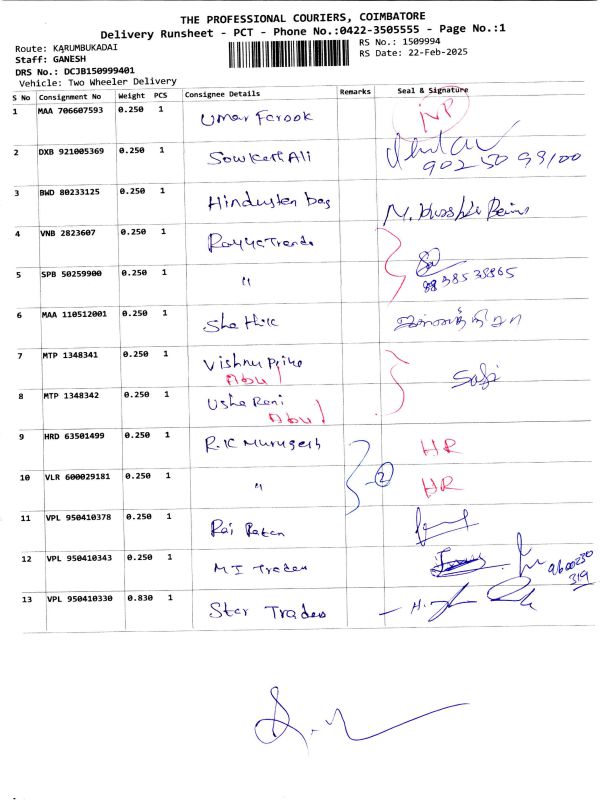 THE PROFESSIONAL COURIERS, COIMBATORE
Delivery Runsheet - PCT - Phone No.:0422-3505555 - Page No.:1
Route: KARUMBUKADAI
RS No.: 1509994
Staff: GANESH
RS Date: 22-Feb-2025
DRS No.: DCJB150999401
Vehicle: Two Wheeler Delivery
S No Consignment No Weight PCS Consignee Details Remarks Seal & Signature
1 MAA 706607593 0.250 1 Umar Farook NP
2 DXB 921005369 0.250 1 Sowkath Ali
3 BWD 80233125 0.250 1 Hindustan bag M.
4 VNB 2823607 0.250 1
5 SPB 50259900 0.250 1 "
6 MAA 110512001 0.250 1
7 MTP 1348341 0.250 1 Vishnu Priya
Abu
8 MTP 1348342 0.250 1 Usha Rani
Abu
9 HRD 63501499 0.250 1 R.K Murugesh HR
10 VLR 600029181 0.250 1 " 2 HR
11 VPL 950410378 0.250 1
12 VPL 950410343 0.250 1 M I Trades
13 VPL 950410330 0.830 1 Star Trades